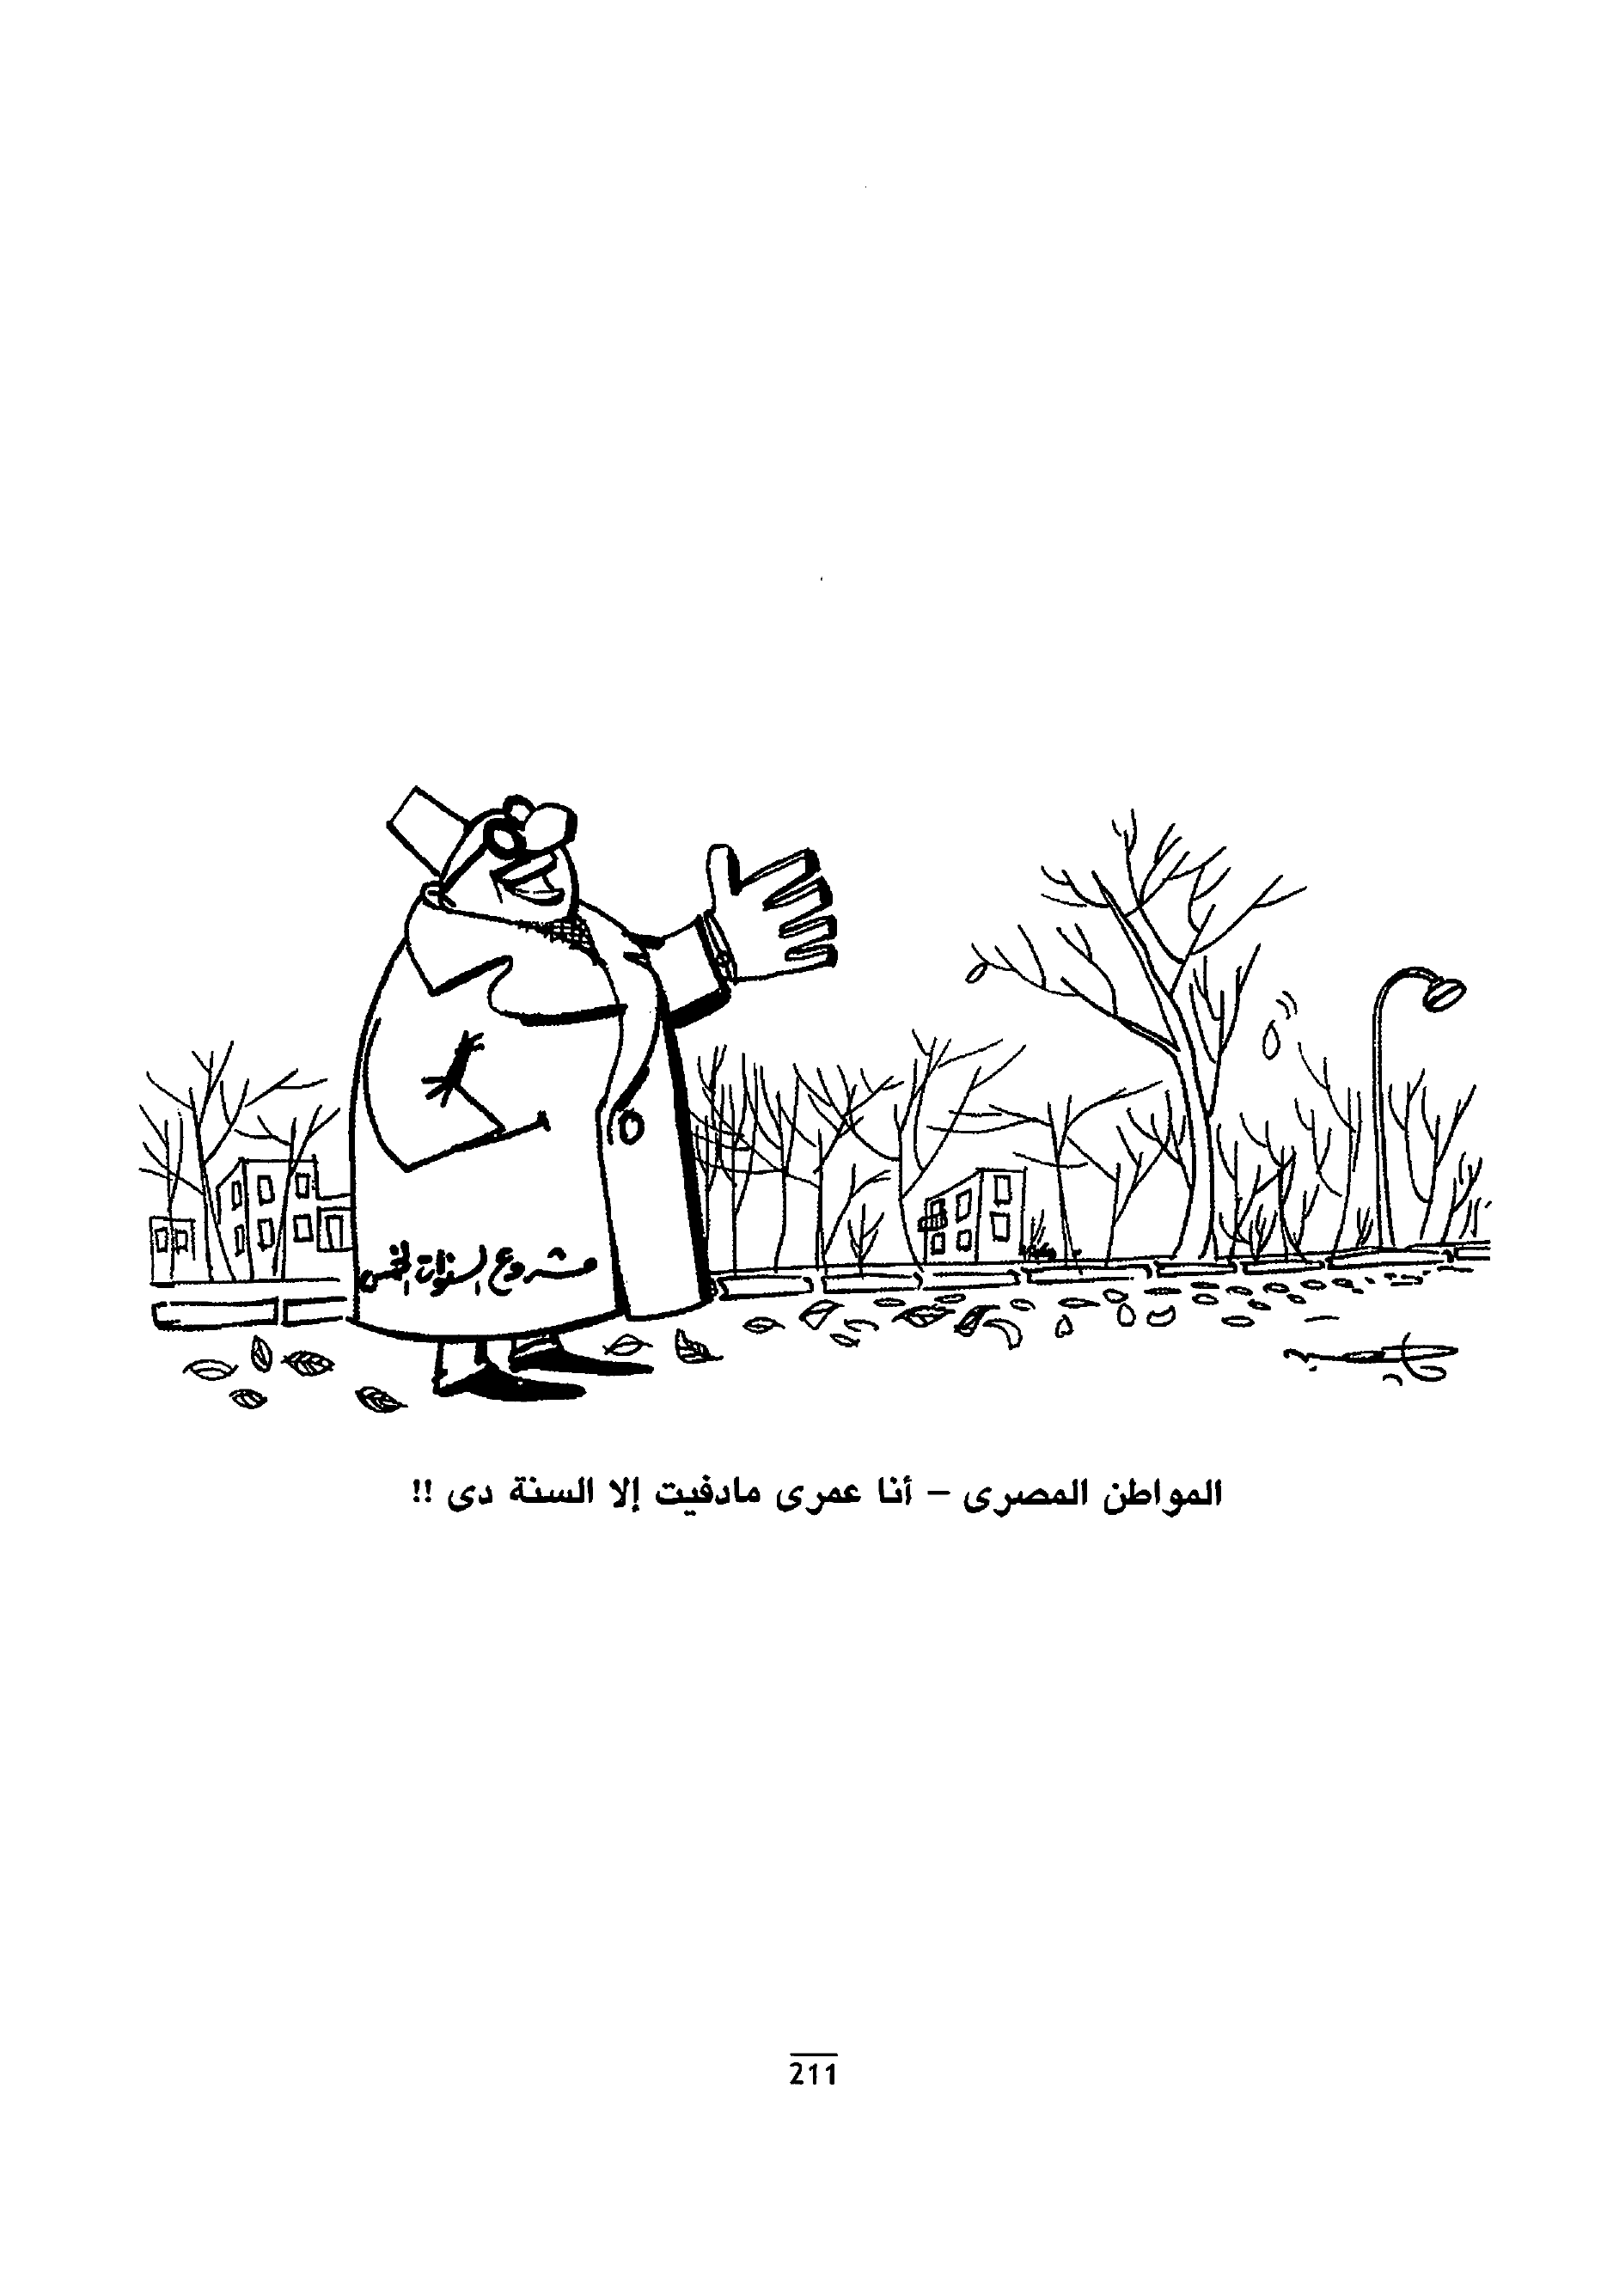 مشروع السنوات الخمس
المواطن المصرى – أنا عمرى مادفيت إلا السنة دى !!
211